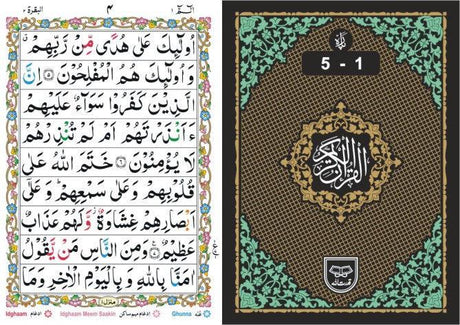 البقرة ٢
٤
الٓمّٓ ١
اُولٰٓئِكَ عَلٰى هُدًى مِّنْ رَّبِّهِمْ
وَ اُولٰٓئِكَ هُمُ الْمُفْلِحُوْنَ ۝٥ اِنَّ
الَّذِيْنَ كَفَرُوْا سَوَآءٌ عَلَيْهِمْ
ءَاَنْذَرْتَهُمْ اَمْ لَمْ تُنْذِرْهُمْ
لَا يُؤْمِنُوْنَ ۝٦ خَتَمَ اللّٰهُ عَلٰى
قُلُوْبِهِمْ وَعَلٰى سَمْعِهِمْ ؕ وَعَلٰٓى
اَبْصَارِهِمْ غِشَاوَةٌ ؗ وَّلَهُمْ عَذَابٌ
عَظِيْمٌ ۝٧ وَمِنَ النَّاسِ مَنْ يَّقُوْلُ
اٰمَنَّا بِاللّٰهِ وَ بِالْيَوْمِ الْاٰخِرِ وَمَا
منزل ١
Idghaam ادغام
Idghaam Meem Saakin ادغام میم ساکن
Ghunna غنه
پارہ
5 - 1
القرآن الكريم